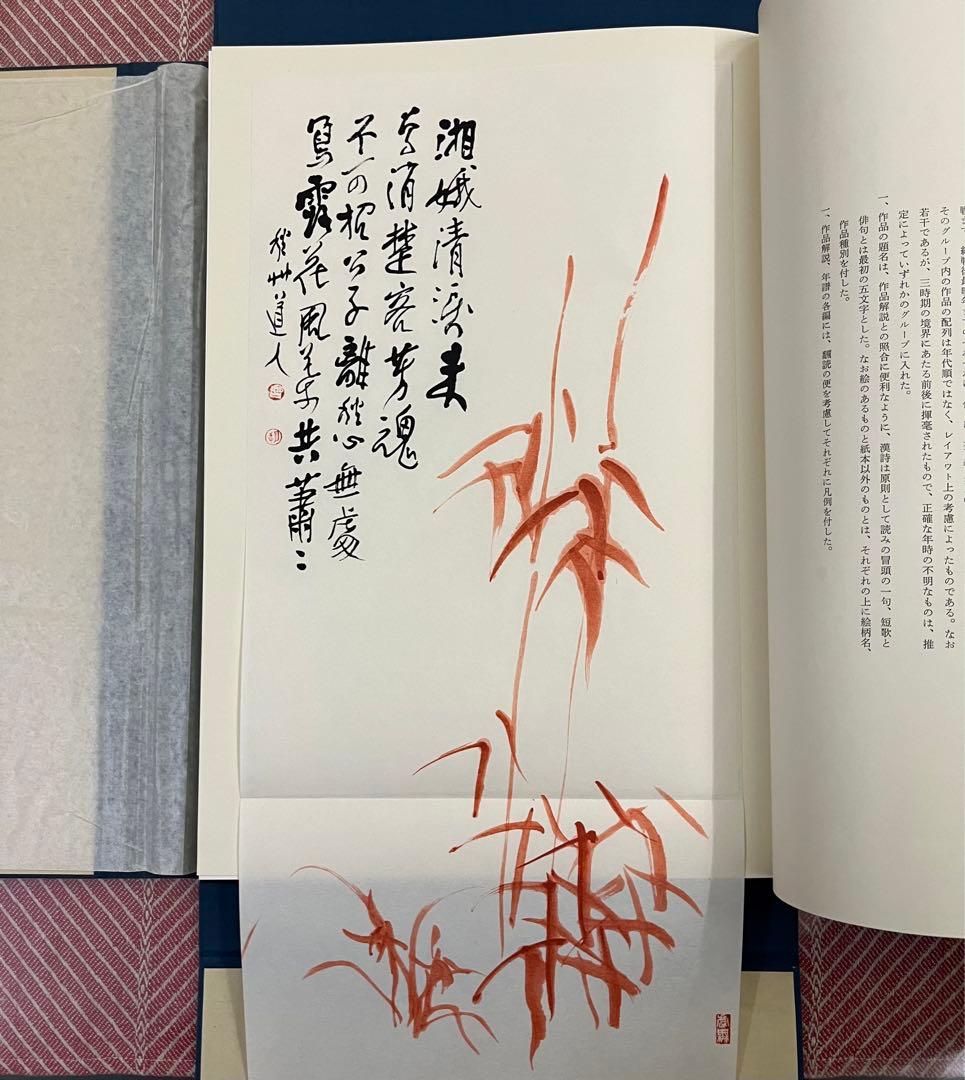 そのグループ内の作品の配列は年代順ではなく、レイアウト上の考慮によったものである。なお
若干であるが、三時期の境界にあたる前後に揮毫されたもので、正確な年時の不明なものは、推
定によっていずれかのグループに入れた。
一、作品の題名は、作品解説との照合に便利なように、漢詩は原則として読みの冒頭の一句、短歌と
俳句とは最初の五文字とした。なお絵のあるものと紙本以外のものとは、それぞれの上に絵柄名、
作品種別を付した。
一、作品解説、年譜の各編には、飜読の便を考慮してそれぞれに凡例を付した。
湘娥清涙未
曽消楚客芳魂
不可招公子離愁無處
寫露花風葉共蕭〻
秋艸道人